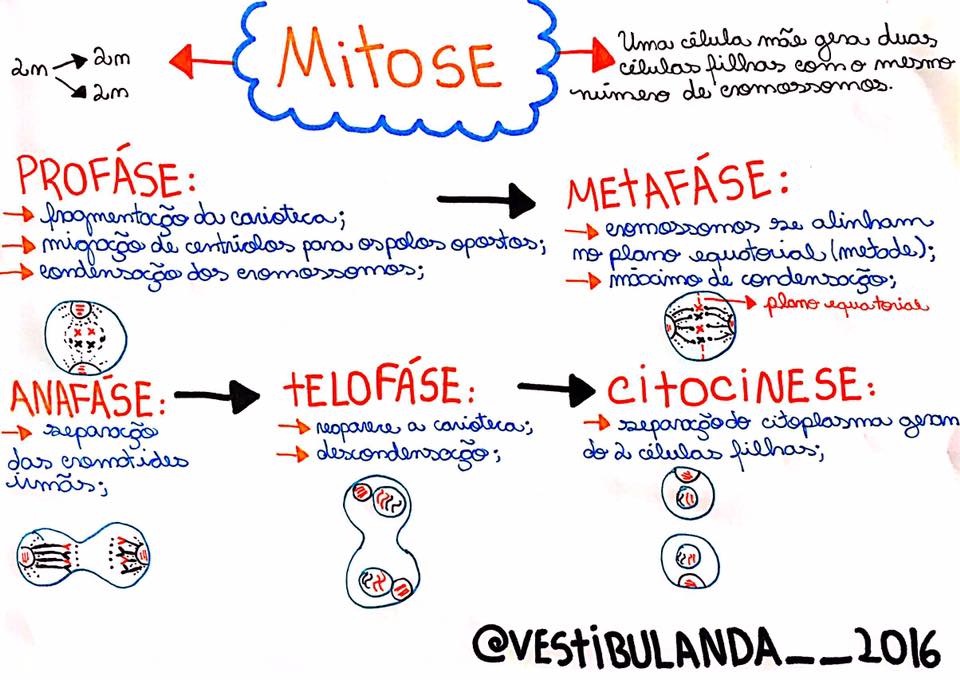 MitOSE
2n → 2n
2n
Uma célula mãe gera duas
células filhas com o mesmo
número de cromossomos.
PROFÁSE:
→ fragmentação da carioteca;
→ migração de centríolos para os polos opostos;
→ condensação dos cromossomos;
MEtAFÁSE:
→ cromossomos se alinham
no plano equatorial (metade);
→ máximo de condensação;
→ plano equatorial
ANAFÁSE:
→ separação
das cromátides
irmãs;
tELOFÁSE:
→ reaparece a carioteca;
→ descondensação;
CitOCiNESE:
→ separação do citoplasma geran
do 2 células filhas;
@VEStiBULANDA__2016